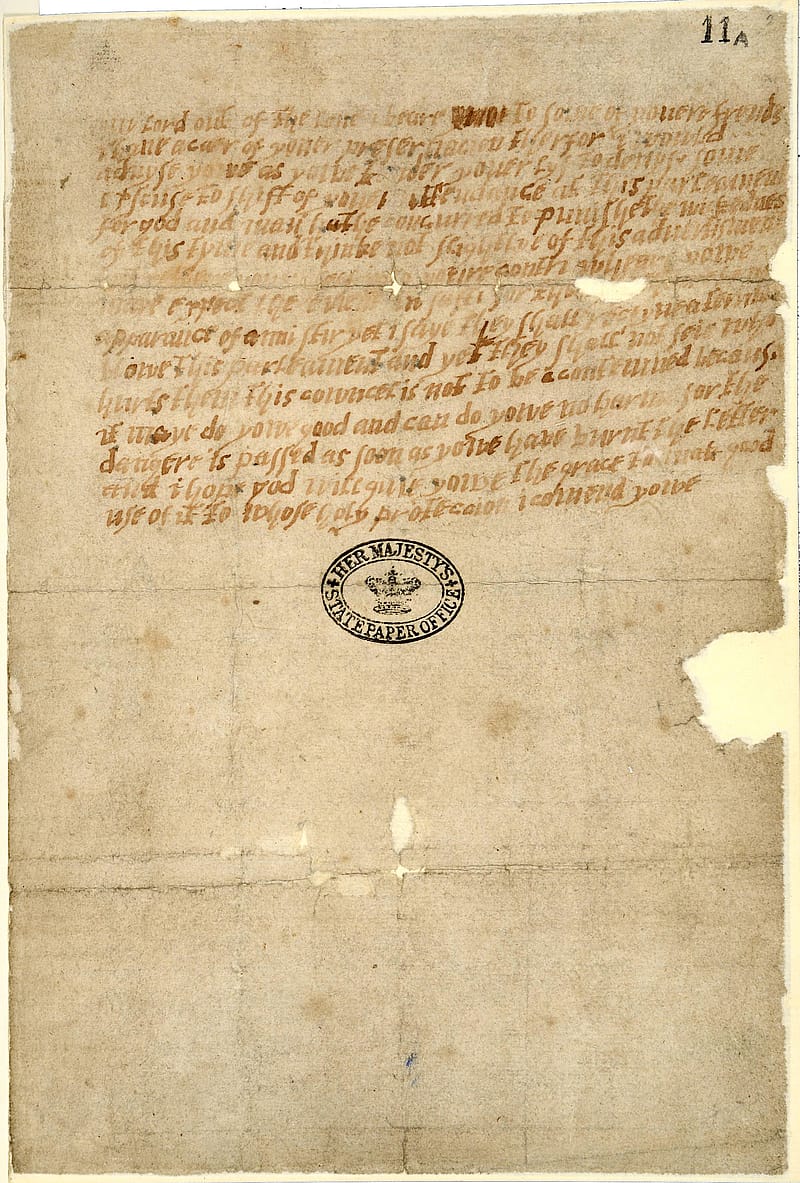 11A
lord out of the love i beare to some of youere frends
i have a caer of youer preseruacion therfor i would
aduyse yowe as yowe tender youer lyf to deuyse some
excuse to shift of youer attendance at this parleament
for god and man hathe concurred to punishe the wickednes
of this tyme and thinke not slightlye of this aduertisment
contri wheare yowe
maye expect the euent in safti for
apparance of anni stir yet i saye they shall receyue a terrible
blowe this parleament and yet they shall not seie who
hurts them this cowncel is not to be a contemned becaus
it maye do yowe good and can do yowe no harme for the
dangere is passed as soon as yowe have burnt the letter
and i hope god will giue yowe the grace to mak good
use of it to whose holy proteccion i comend yowe
HER MAJESTY'S
STATE PAPER OFFICE